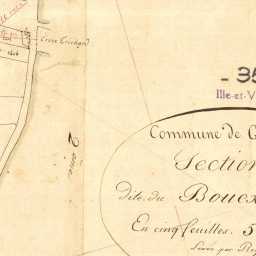 - 35
Ille-et-V
Commune de G
Section
dite du Bouex
En cinq feuilles. 5
Levée par
2 eme